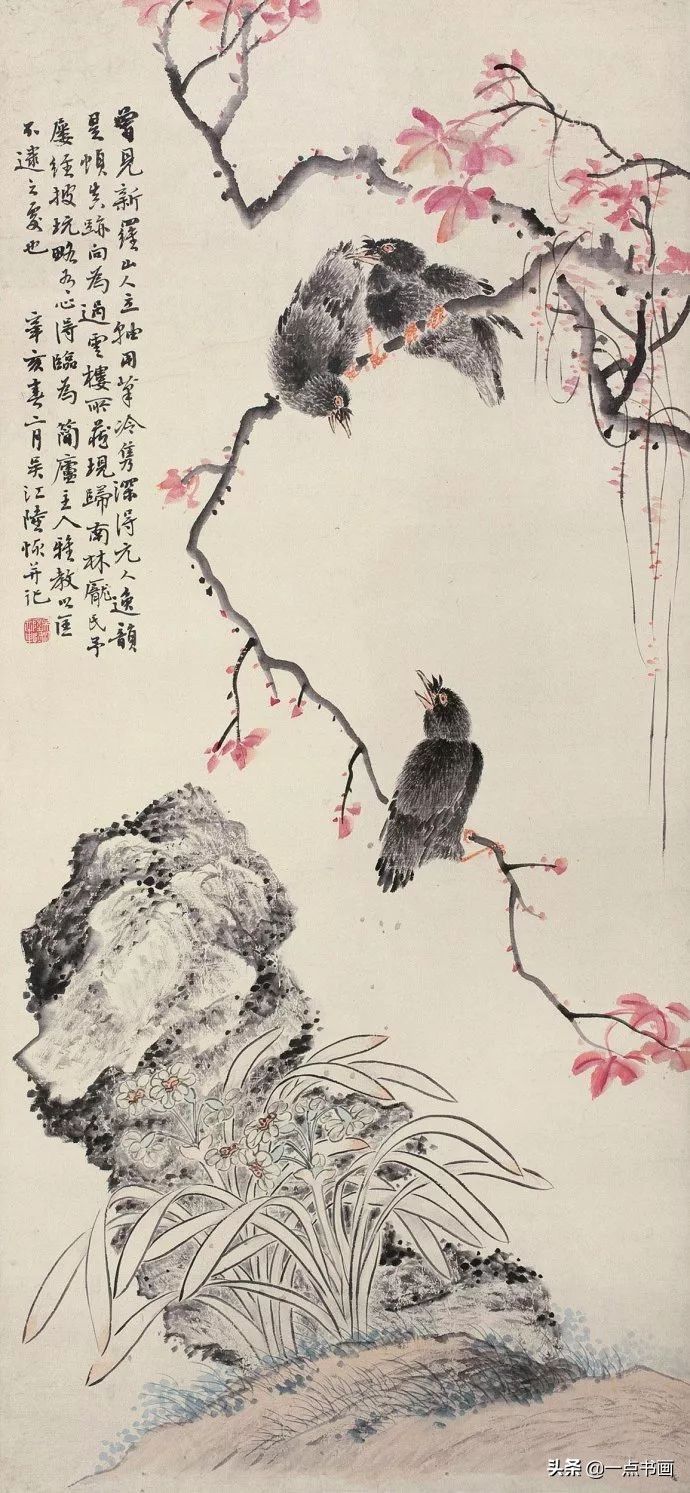 曾見新羅山人立軸用筆冷雋深得元人逸韻
是幀真跡向為過雲樓所藏現歸南林龐氏予
屢經披玩略有心得臨為簡廬主人雅教以匡
不逮之處也 辛亥春二月吳江陸恢并記
头条 @一点书画